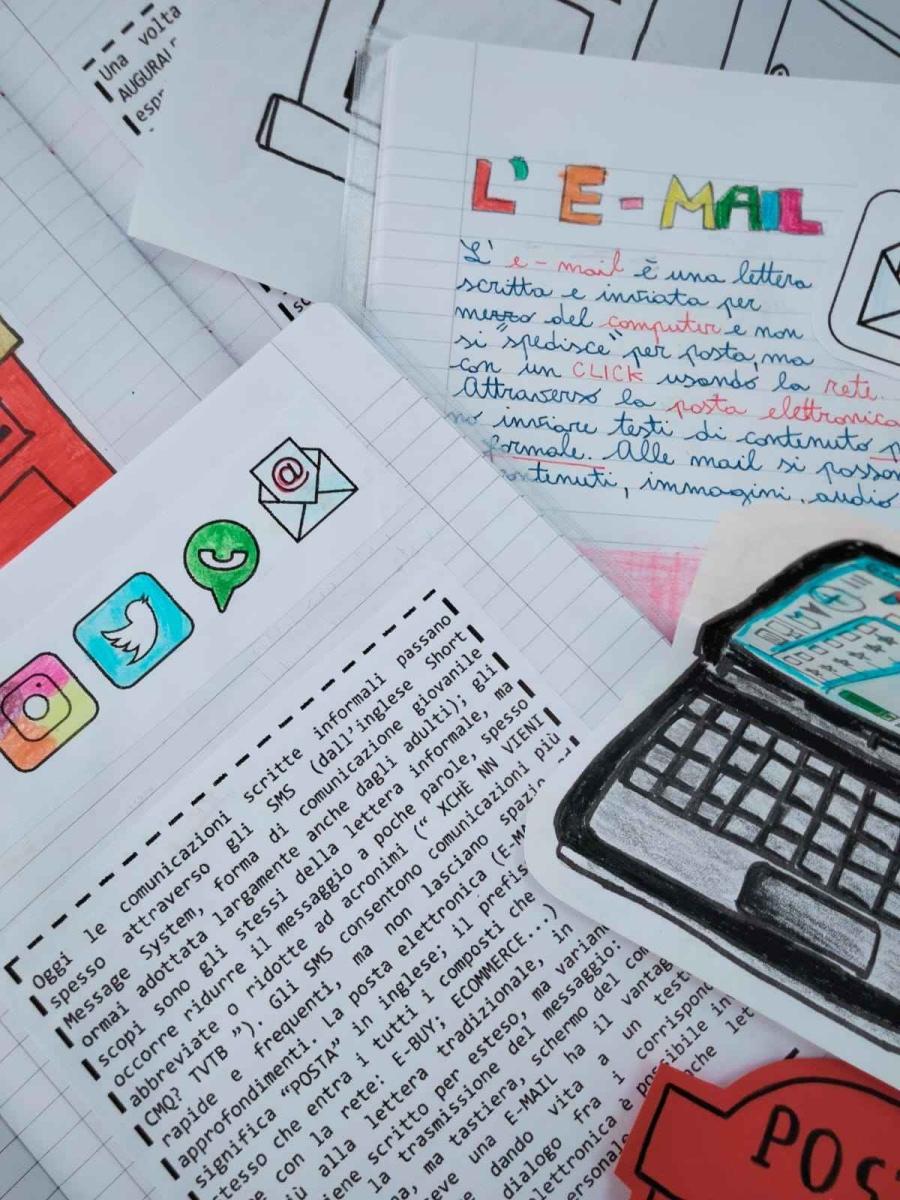 Una volta
AUGURAL
espr
L' E-MAIL
L' e-mail è una lettera
scritta e inviata per
mezzo del computer e non
si "spedisce" per posta, ma
con un CLICK usando la rete.
Attraverso la posta elettronica
no inviare testi di contenuto
formale. Alle mail si posson
ntenuti, immagini, audio
@
Oggi le comunicazioni scritte informali passano
spesso attraverso gli SMS (dall'inglese Short
Message System, forma di comunicazione giovanile
ormai adottata largamente anche dagli adulti); gli
scopi sono gli stessi della lettera informale, ma
occorre ridurre il messaggio a poche parole, spesso
abbreviate o ridotte ad acronimi (“ XCHÈ NN VIENI
CMQ? TVTB ”). Gli SMS consentono comunicazioni più
rapide e frequenti, ma non lasciano spazio
approfondimenti. La posta elettronica (E-MA
significa “POSTA” in inglese; il prefis
stesso che entra i tutti i composti che
e con la rete: E-BUY; ECOMMERCE...)
iù alla lettera tradizionale, in
iene scritto per esteso, ma varian
la trasmissione del messaggio:
na, ma tastiera, schermo del com
eve una E-MAIL ha il vantag
dando vita a un test
dialogo fra i corrispon
elettronica è possibile in
personal anche let
POS